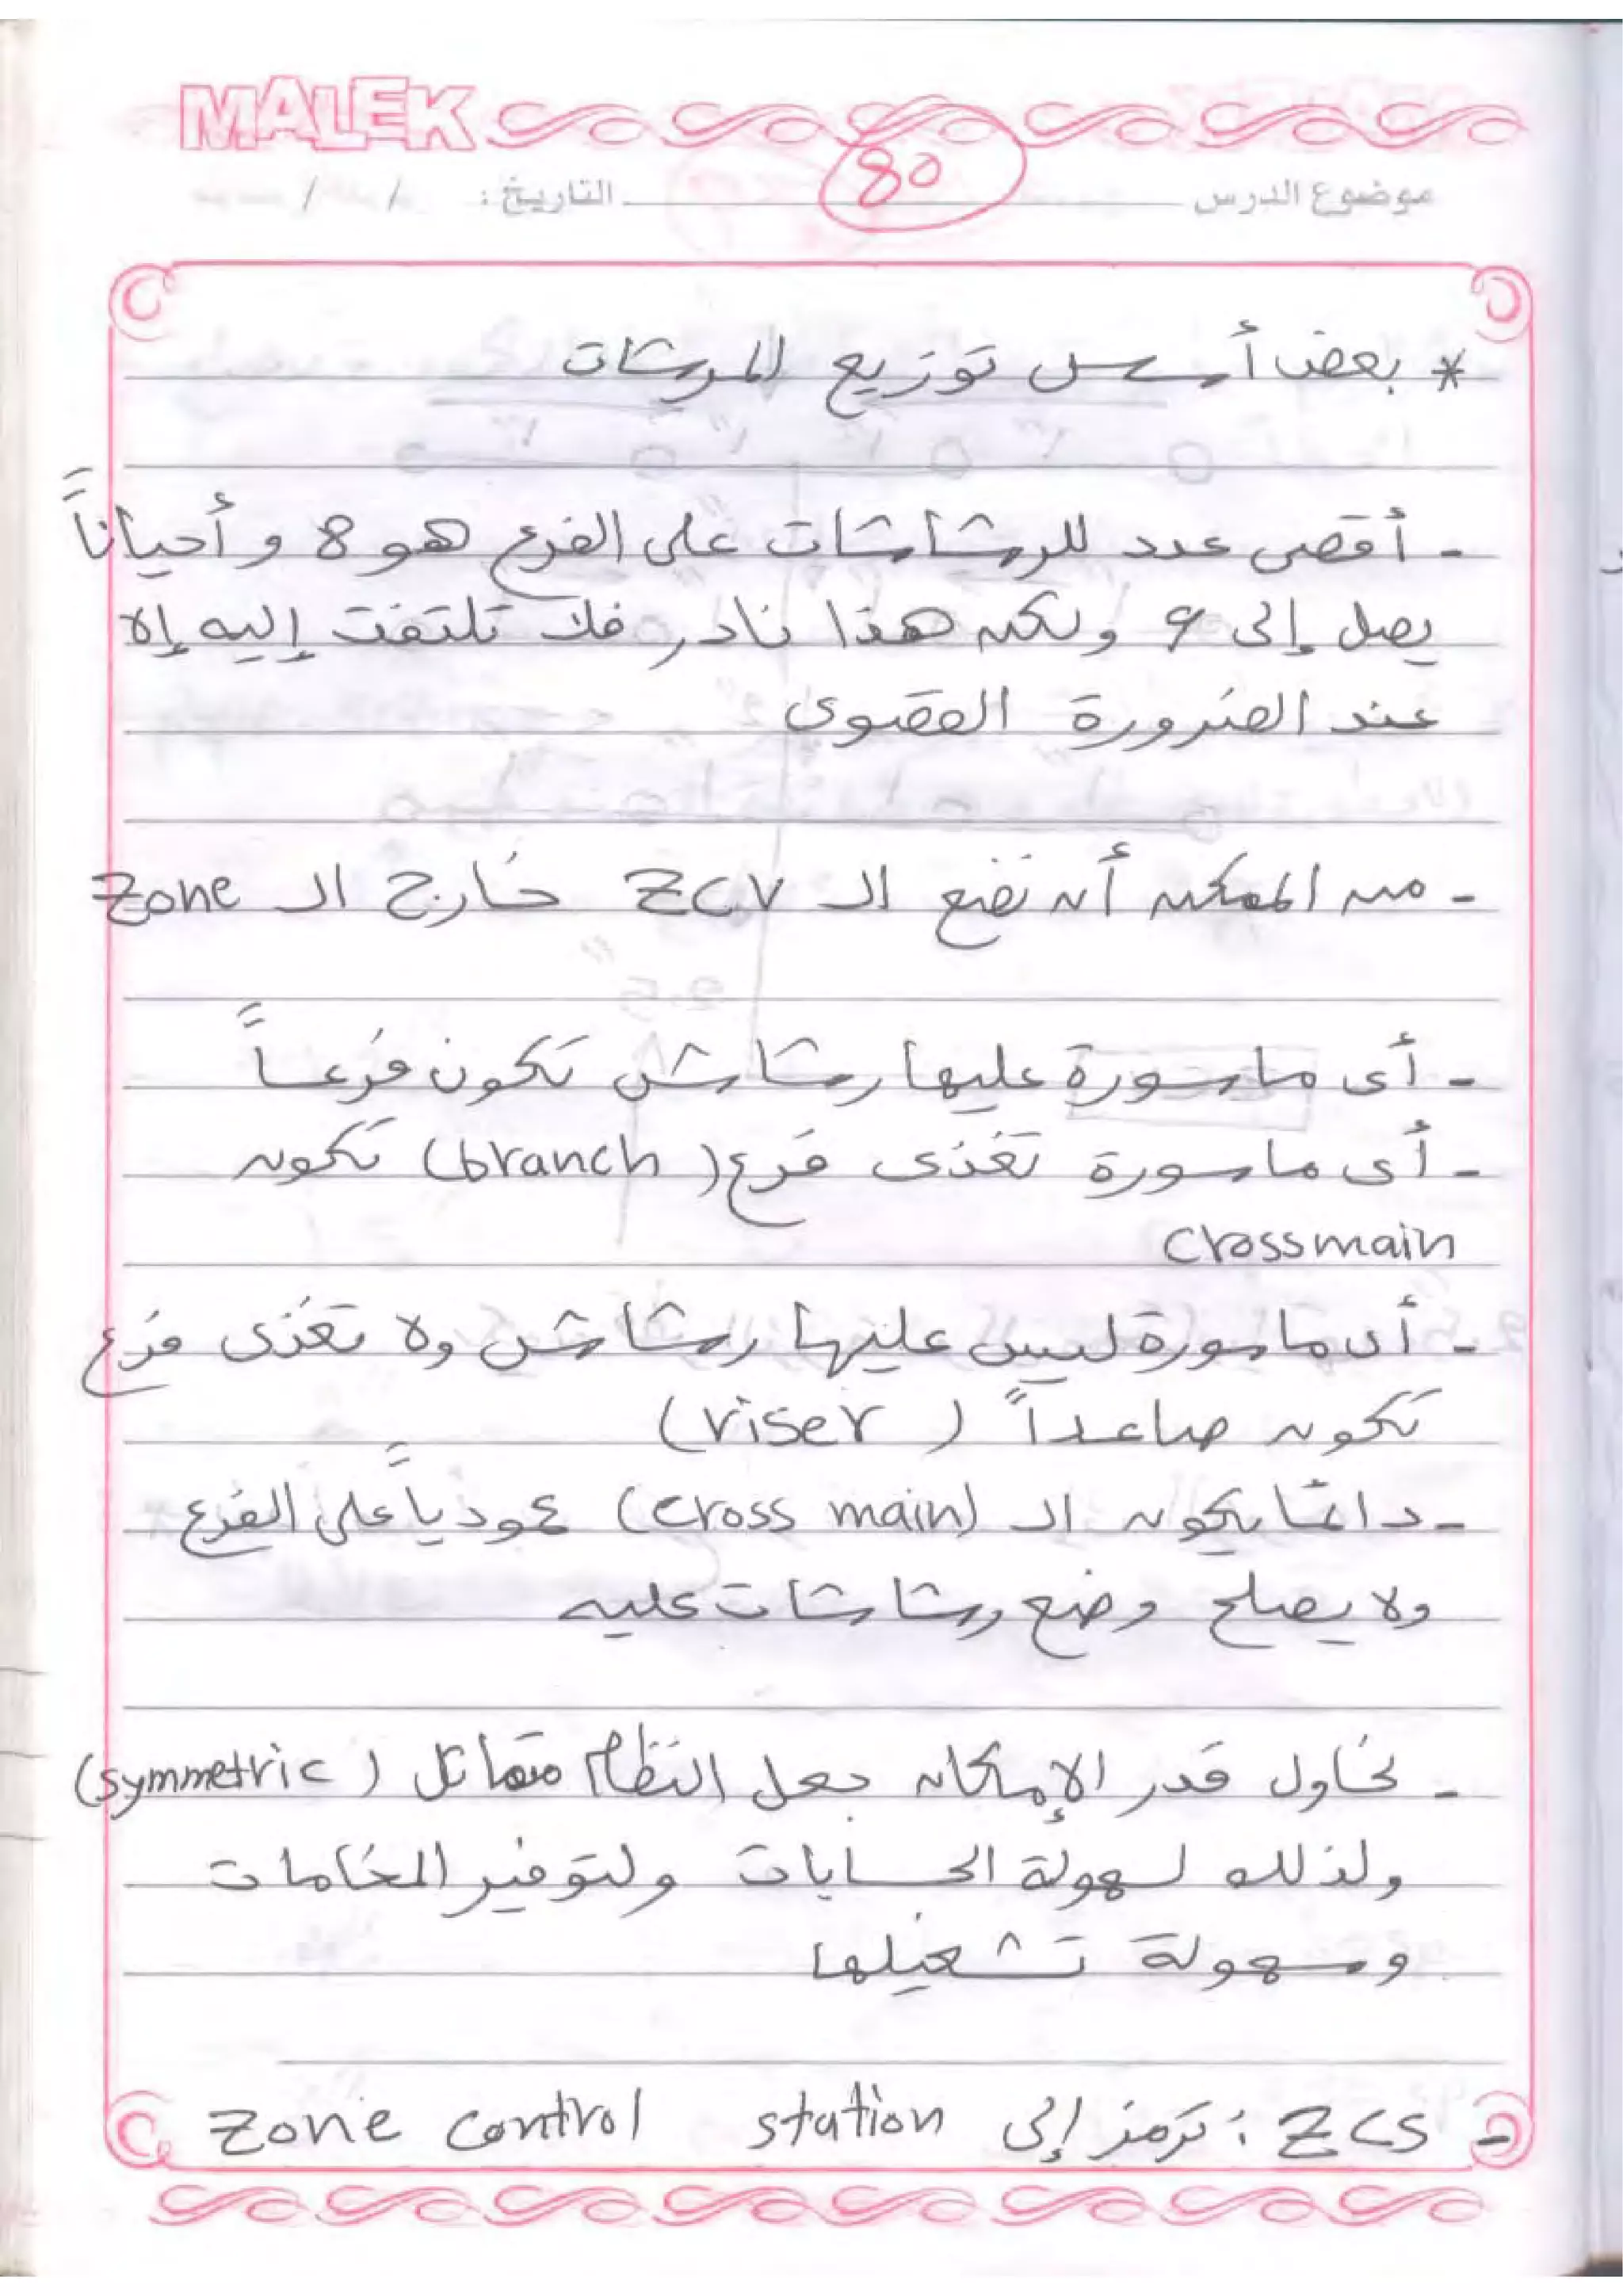 MALEK
80
موضوع الدرس التاريخ: / /
* بعض أسس توزيع المرشات
- أقصى عدد للرشاشات على الفرع هو 8 وأحياناً
يصل إلى 9 ولكن هذا نادر فلا تلتفت إليه إلا
عند الضرورة القصوى
- من الممكن أن نضع الـ ZCV خارج الـ Zone
- أى ماسورة عليها رشاش تكون فرعاً
- أى ماسورة تغذى فرع (branch) تكون
Crossmain
- أى ماسورة ليس عليها رشاش ولا تغذى فرع
تكون صاعداً (riser)
- دائما يكون الـ (cross main) عموديا على الفرع
ولا يصلح وضع رشاشات عليه
- نحاول قدر الإمكان جعل النظام متماثل (symmetric)
ولذلك لسهولة الحسابات ولتوفير الخامات
وسهولة تشغيلها
- ZCS : ترمز إلى Zone control station